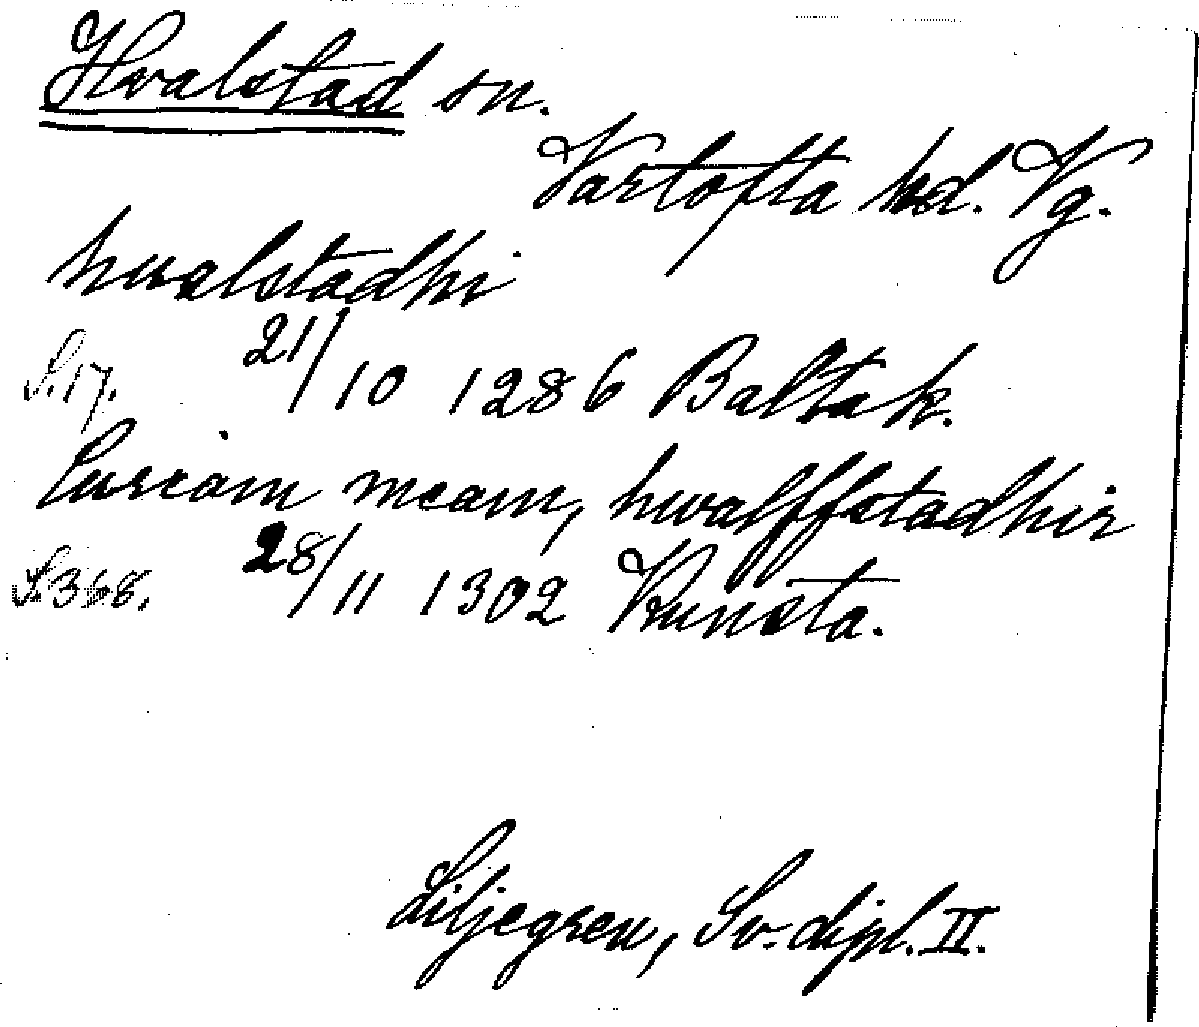 Hvalstad sn.
Vartofta hd. Vg.
hwalstadhi
S. 17. 21/10 1286 Baltak.
Curiam meam, hwalffstadhir
S. 368. 28/11 1302 Kunsta.
Liljegren, Sv. dipl. II.